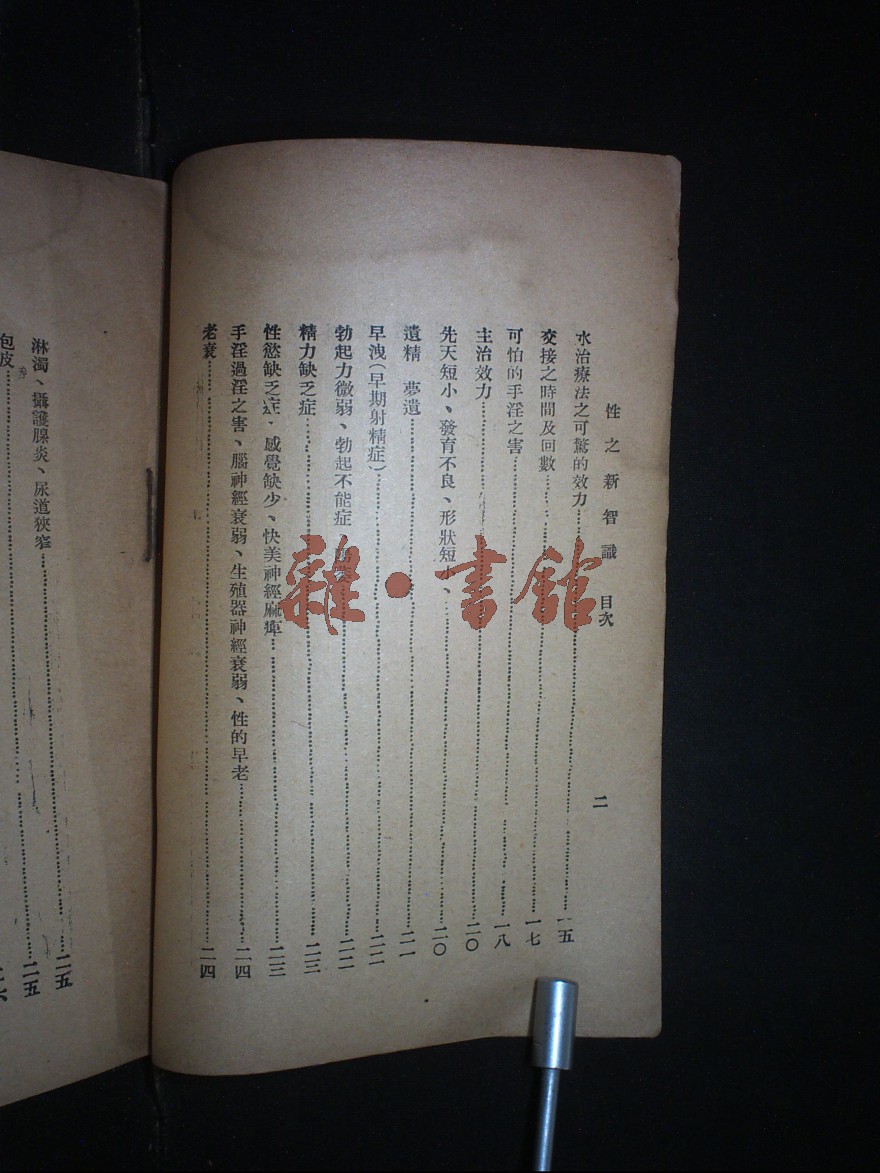 性之新智識 目次 二
水治療法之可驚的效力……一五
交接之時間及回數……一七
可怕的手淫之害……一八
主治效力……二〇
先天短小、發育不良、形狀短……二〇
遺精 夢遺……二一
早洩(早期射精症)……二二
勃起力微弱、勃起不能症……二二
精力缺乏症……二三
性慾缺乏症、感覺缺少、快美神經麻痺……二三
手淫過淫之害、腦神經衰弱、生殖器神經衰弱、性的早老……二四
老衰……二四
……二五
淋濁、攝護腺炎、尿道狹窄……二五
包皮……二六
雜·書館